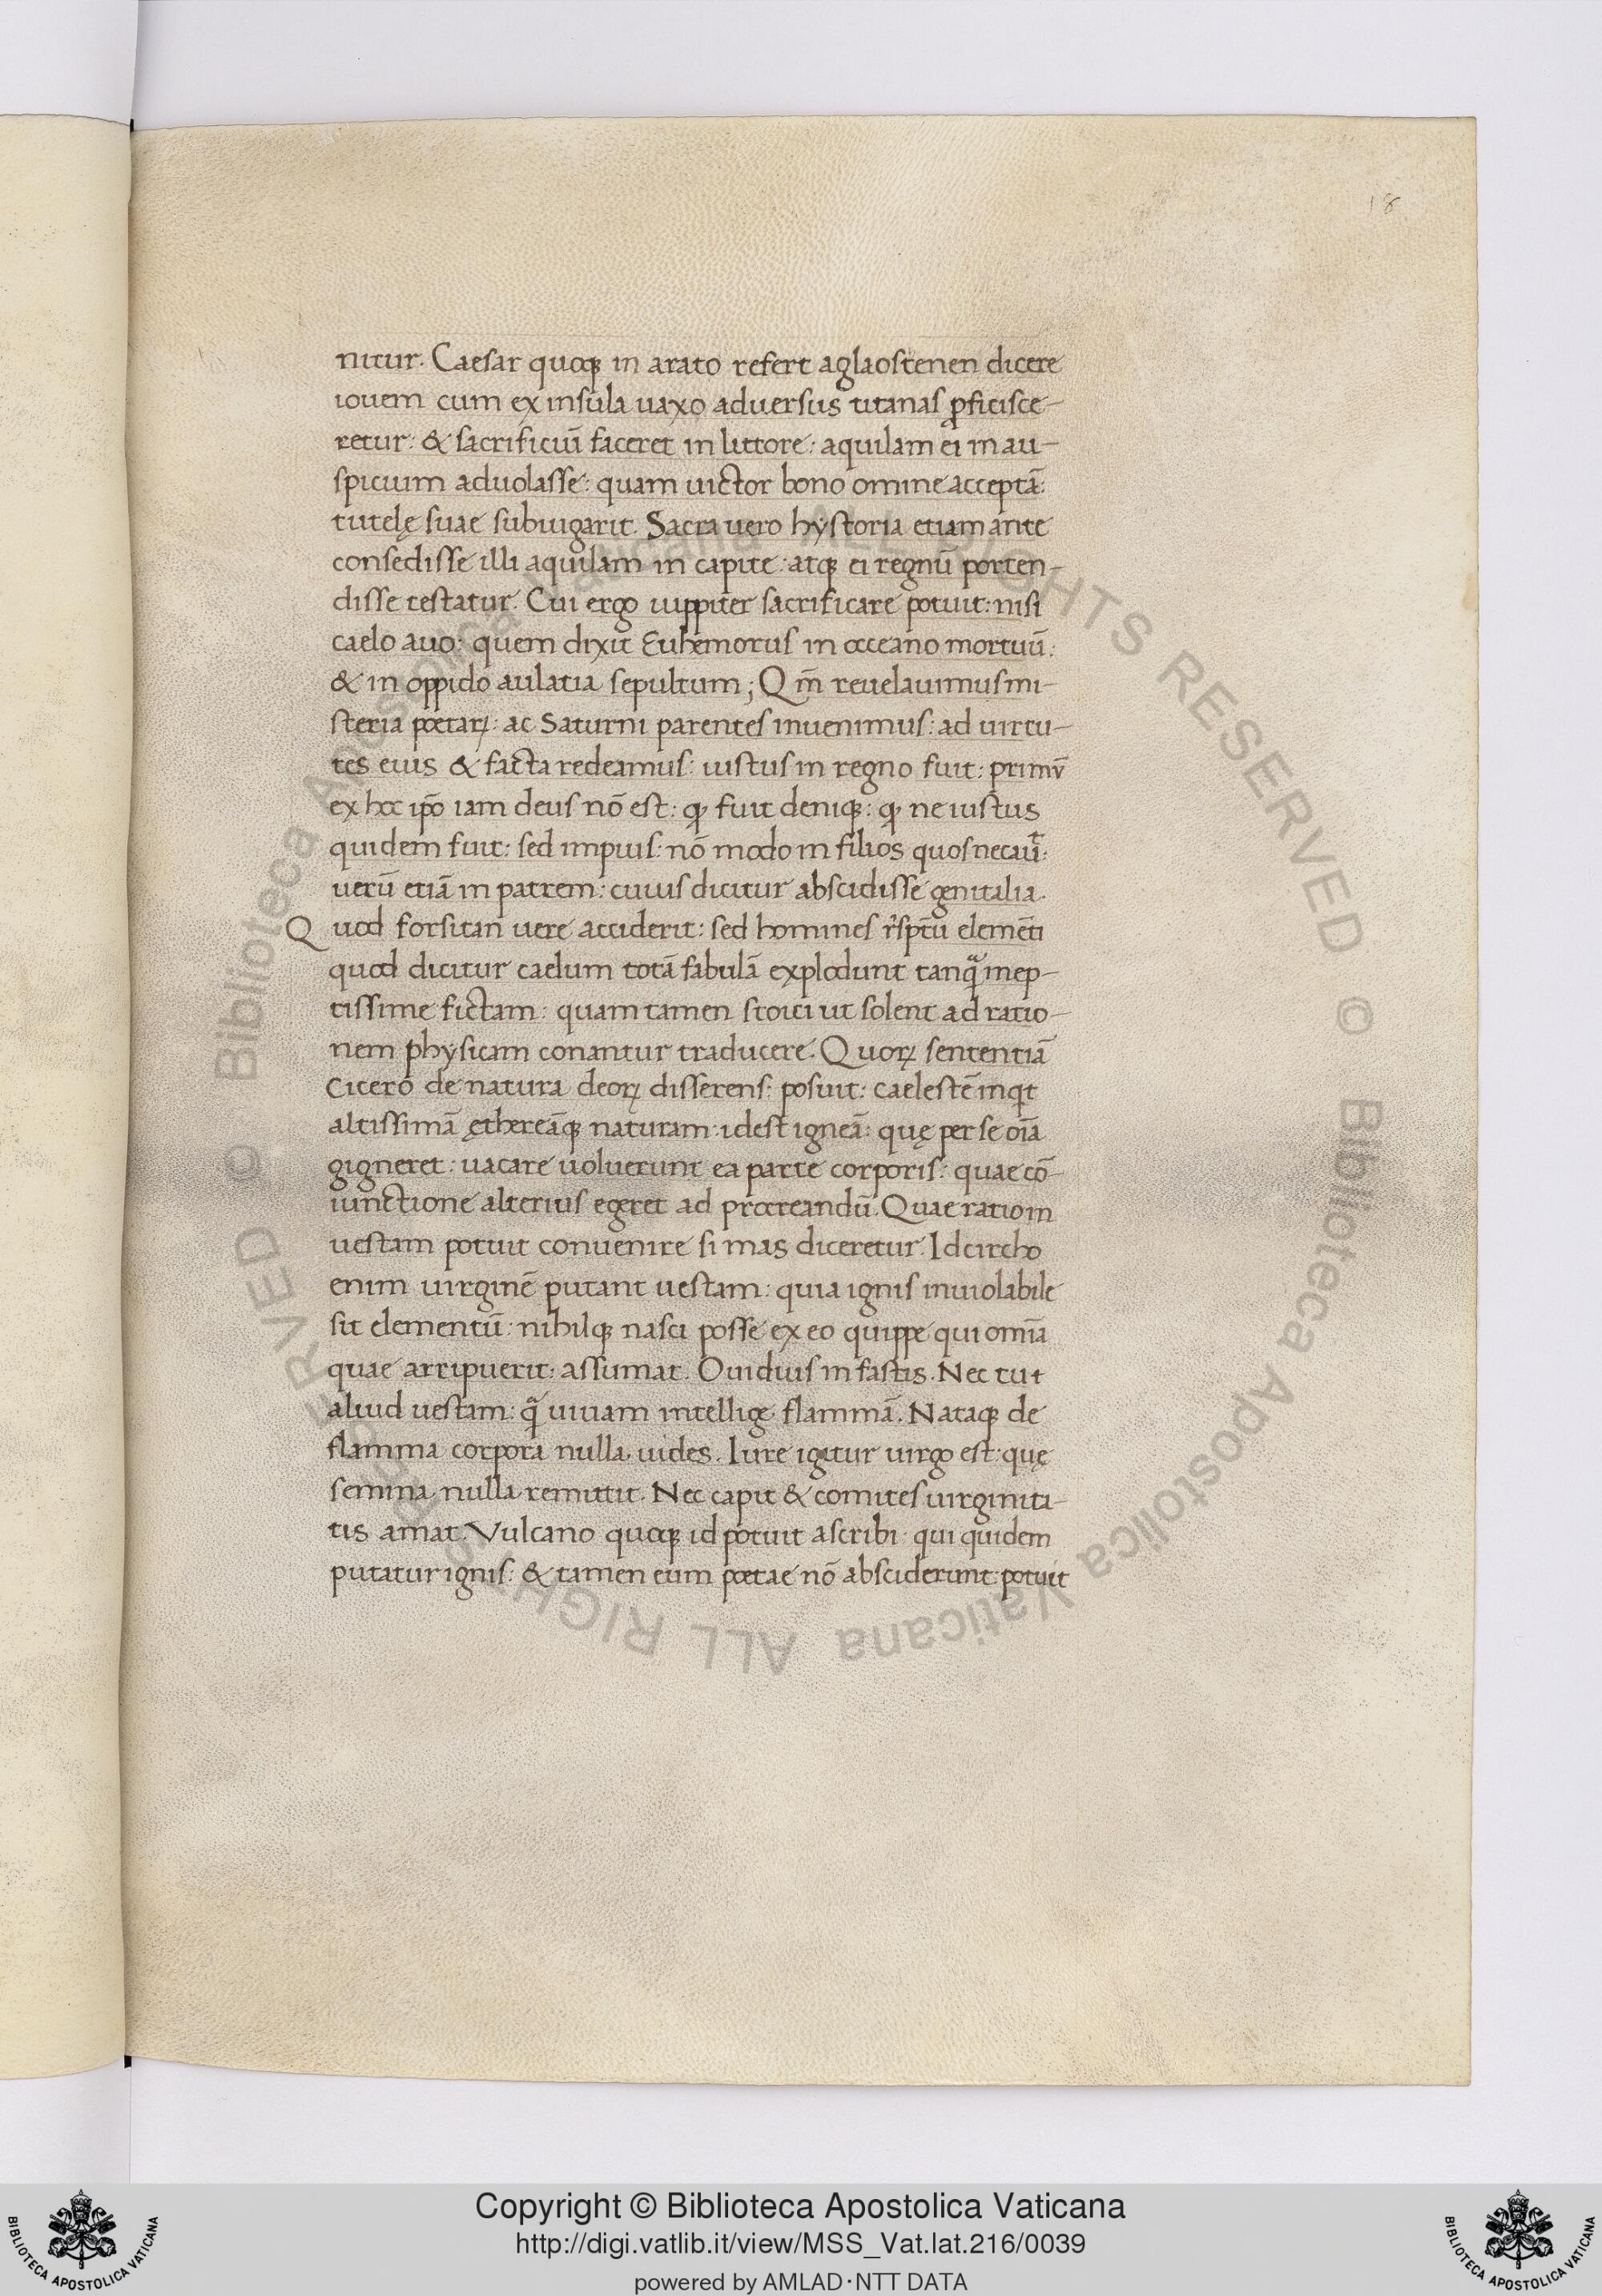 18
nitur. Caesar quoqꝫ in arato refert aglaostenen dicere
iouem cum ex insula uaxo aduersus titanas ꝓficisce-
retur: & sacrificiū faceret in littore: aquilam ei in au-
spicium aduolasse: quam uictor bono omine acceptā:
tutelę suae subiugarit. Sacra uero hystoria etiam ante
consedisse illi aquilam in capite: atqꝫ ei regnū porten-
disse testatur. Cui ergo iuppiter sacrificare potuit: nisi
caelo auo: quem dixit Euhemorus in occeano mortuū:
& in oppido aulatia sepultum; Qm̄ reuelauimus mi-
steria poetaꝝ: ac Saturni parentes inuenimus: ad uirtu-
tes eius & facta redeamus: iustus in regno fuit: primū
ex hoc ip̄o iam deus nō est: ꝙ fuit deniqꝫ: ꝙ ne iustus
quidem fuit: sed impius: nō modo in filios quos necauit:
uerū etiā in patrem: cuius dicitur abscidisse genitalia.
Quod forsitan uere acciderit: sed homines r̓sptū elemēti
quod dicitur caelum totā fabulā explodunt tanqͣ̄ inep-
tissime fictam: quam tamen stoici ut solent ad ratio-
nem physicam conantur traducere. Quoꝝ sententiā
Cicero de natura deoꝝ disserens: posuit: caelestē inqͥt
altissimā ętherēaqꝫ naturam: idest igneā: quę per se oīa
gigneret: uacare uoluerunt ea parte corporis: quae cō-
iunctione alterius egeret ad procreandū. Quae ratio in
uestam potuit conuenire si mas diceretur. Idcircho
enim uirginē putant uestam: quia ignis inuiolabile
sit elementū: nihilqꝫ nasci posse ex eo quippe qui omīa
quae arripuerit: assumat. Ouidius in fastis. Nec tu t
aliud uestam: qͣ̄ uiuam intellige flammā. Nataqꝫ de
flamma corpora nulla uides. Iure igitur uirgo est: quę
semina nulla remittit. Nec capit & comites uirginita-
tis amat. Vulcano quoqꝫ id potuit ascribi: qui quidem
putatur ignis: & tamen eum poetae nō absciderunt: potuit
© Biblioteca Apostolica Vaticana ALL RIGHTS RESERVED
© Biblioteca Apostolica Vaticana ALL RIGHTS RESERVED
Copyright © Biblioteca Apostolica Vaticana
http://digi.vatlib.it/view/MSS_Vat.lat.216/0039
powered by AMLAD·NTT DATA
BIBLIOTECA APOSTOLICA VATICANA
BIBLIOTECA APOSTOLICA VATICANA